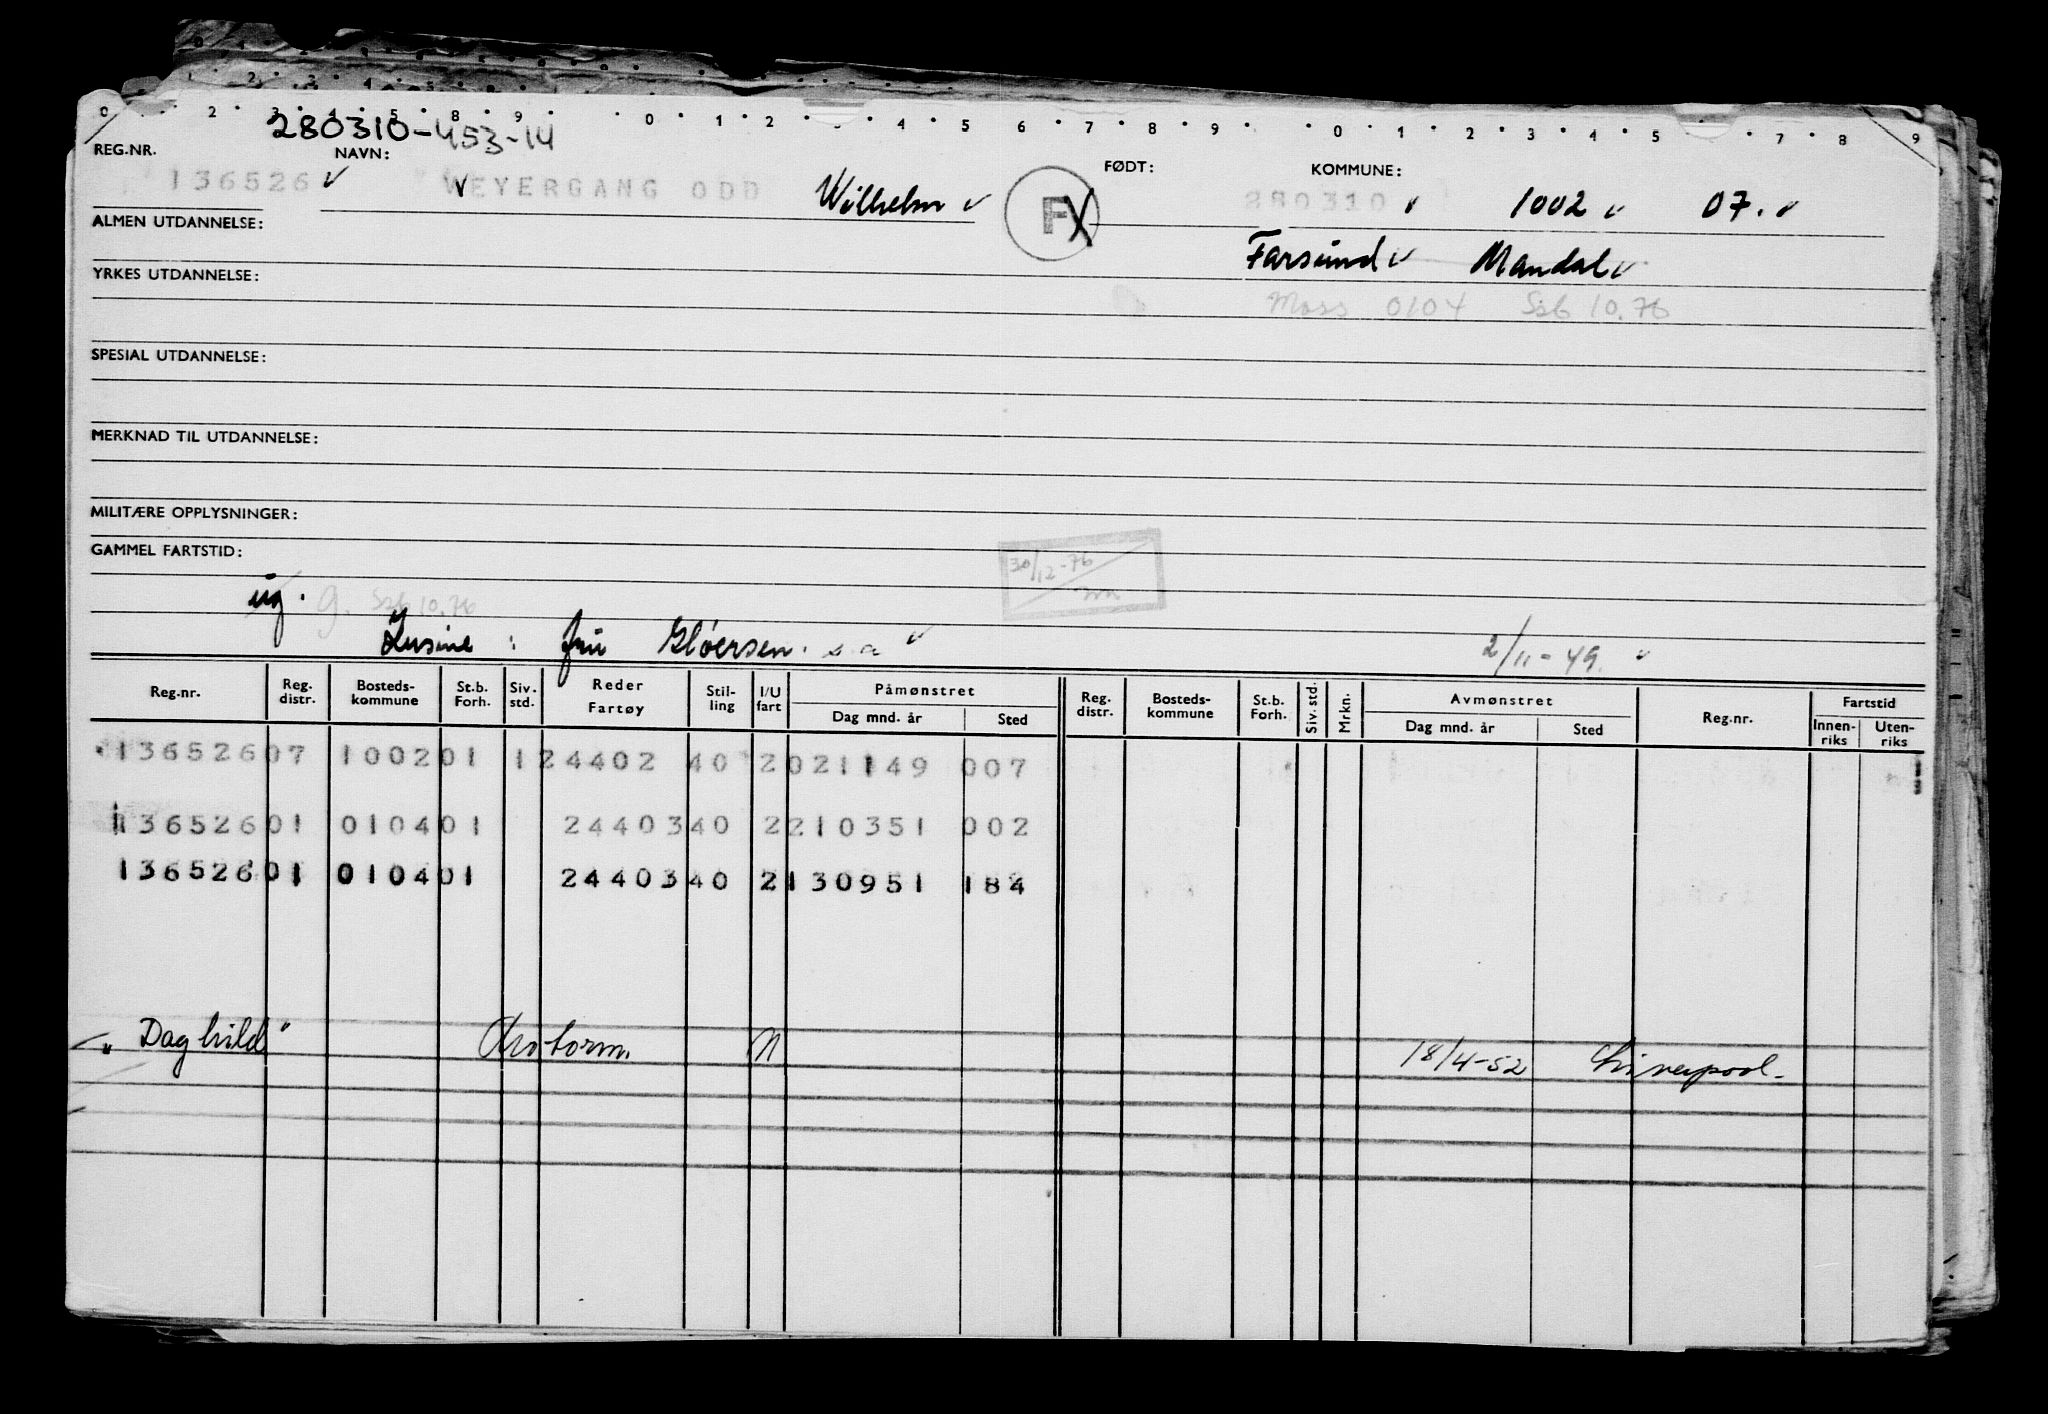 280310-453-14
REG.NR. NAVN: FØDT: KOMMUNE:
136526 WEYERGANG ODD Wilhelm F 280310 1002 07.
ALMEN UTDANNELSE:
Farsund Mandal
YRKES UTDANNELSE:
Moss 0104 Ssb 10.76
SPESIAL UTDANNELSE:
MERKNAD TIL UTDANNELSE:
MILITÆRE OPPLYSNINGER:
GAMMEL FARTSTID:
30/12-76
ug. g. Ssb 10.76
Kusine : fru Gløersen. s a 2/11-49.
Reg.nr. Reg. distr. Bosteds-kommune St.b. Forh. Siv. std. Reder Fartøy Stil-ling I/U fart Påmønstret Dag mnd. år Sted Reg. distr. Bosteds-kommune St.b. Forh. Siv. std. Mrkn. Avmønstret Dag mnd. år Sted Reg.nr. Fartstid Innen-riks Uten-riks
136526 07 1002 01 1 24402 40 2 021149 007
136526 01 0104 01 24403 40 2 210351 002
136526 01 0104 01 24403 40 2 130951 184
"Daghild" Motorm. N 18/4-52 Liverpool.